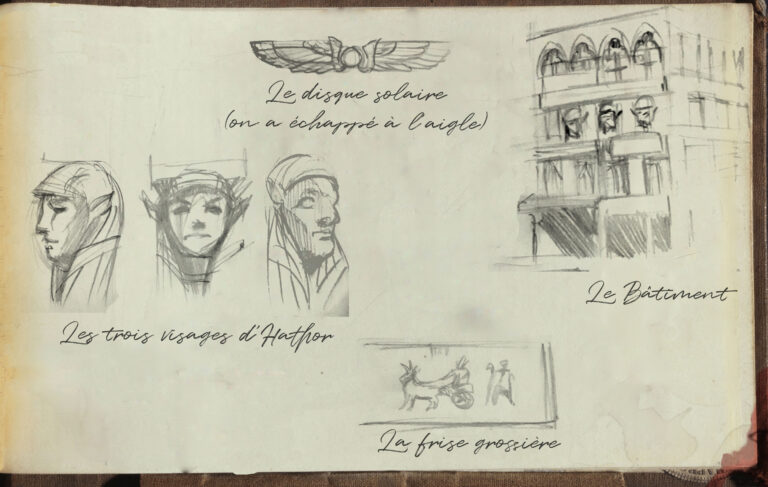 Le disque solaire
(on a échappé à l'aigle)
Les trois visages d'Hathor
Le Bâtiment
La frise grossière